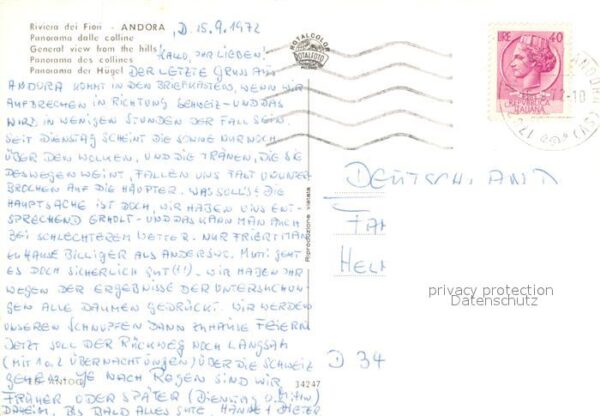 Riviera dei Fiori - ANDORA
Panorama dalle colline
General view from the hills
Panorama des collines
Panorama der Hügel
D. 15.9.1972
HALLO, IHR LIEBEN!
DER LETZTE GRUSS AUS
ANDORA KOMMT IN DEN BRIEFKASTEN, WENN WIR
AUFBRECHEN IN RICHTUNG SCHWEIZ - UND DAS
WIRD IN WENIGEN STUNDEN DER FALL SEIN.
SEIT DIENSTAG SCHEINT DIE SONNE NUR NOCH
ÜBER DEN WOLKEN, UND DIE TRÄNEN, DIE SIE
DESWEGEN WEINT, FALLEN UNS FAST UNUNTER-
BROCHEN AUF DIE HÄUPTER. WAS SOLL'S: DIE
HAUPTSACHE IST DOCH, WIR HABEN UNS ENT-
SPRECHEND ERHOLT - UND DAS KANN MAN AUCH
BEI SCHLECHTEREM WETTER. NUR FRIERT MAN
ZUHAUSE BILLIGER ALS ANDERSWO. MUTTI GEHT
ES DOCH SICHERLICH GUT(!!). WIR HABEN IHR
WEGEN DER ERGEBNISSE DER UNTERSUCHUN-
GEN ALLE DAUMEN GEDRÜCKT. WIR WERDEN
UNSEREN SCHNUPFEN DANN ZUHAUSE FEIERN
JETZT SOLL DER RÜCKWEG NOCH LANGSAM
(MIT 1 o. 2 ÜBERNACHTUNGEN) ÜBER DIE SCHWEIZ
GEHEN. JE NACH REGEN SIND WIR
FRÜHER ODER SPÄTER (DIENSTAG o. Mittw)
DAHEIM. BIS BALD ALLES GUTE. HANNE + DIETER
ROTALCOLOR
ROTALFOTO
MILANO
Riproduzione vietata
34247
LIRE 40
REPUBBLICA
ITALIANA
ANDORA
(SV)
DEUTSCHLAND
FAM
HELM
D 34
privacy protection
Datenschutz